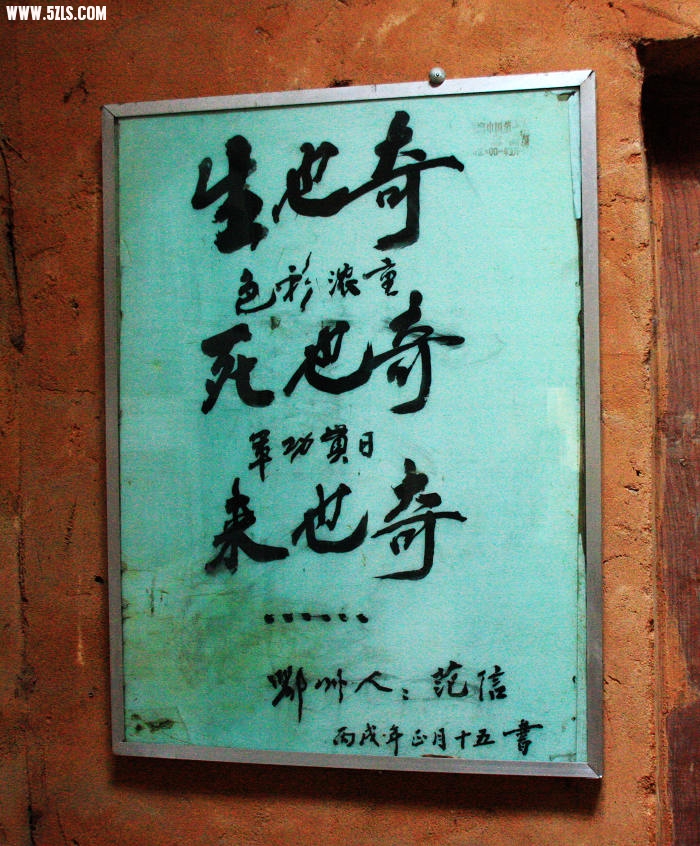 WWW.5ZLS.COM
生也奇
色彩浓重
死也奇
军功貫日
来也奇
......
鄂州人：范信
丙戌年正月十五书